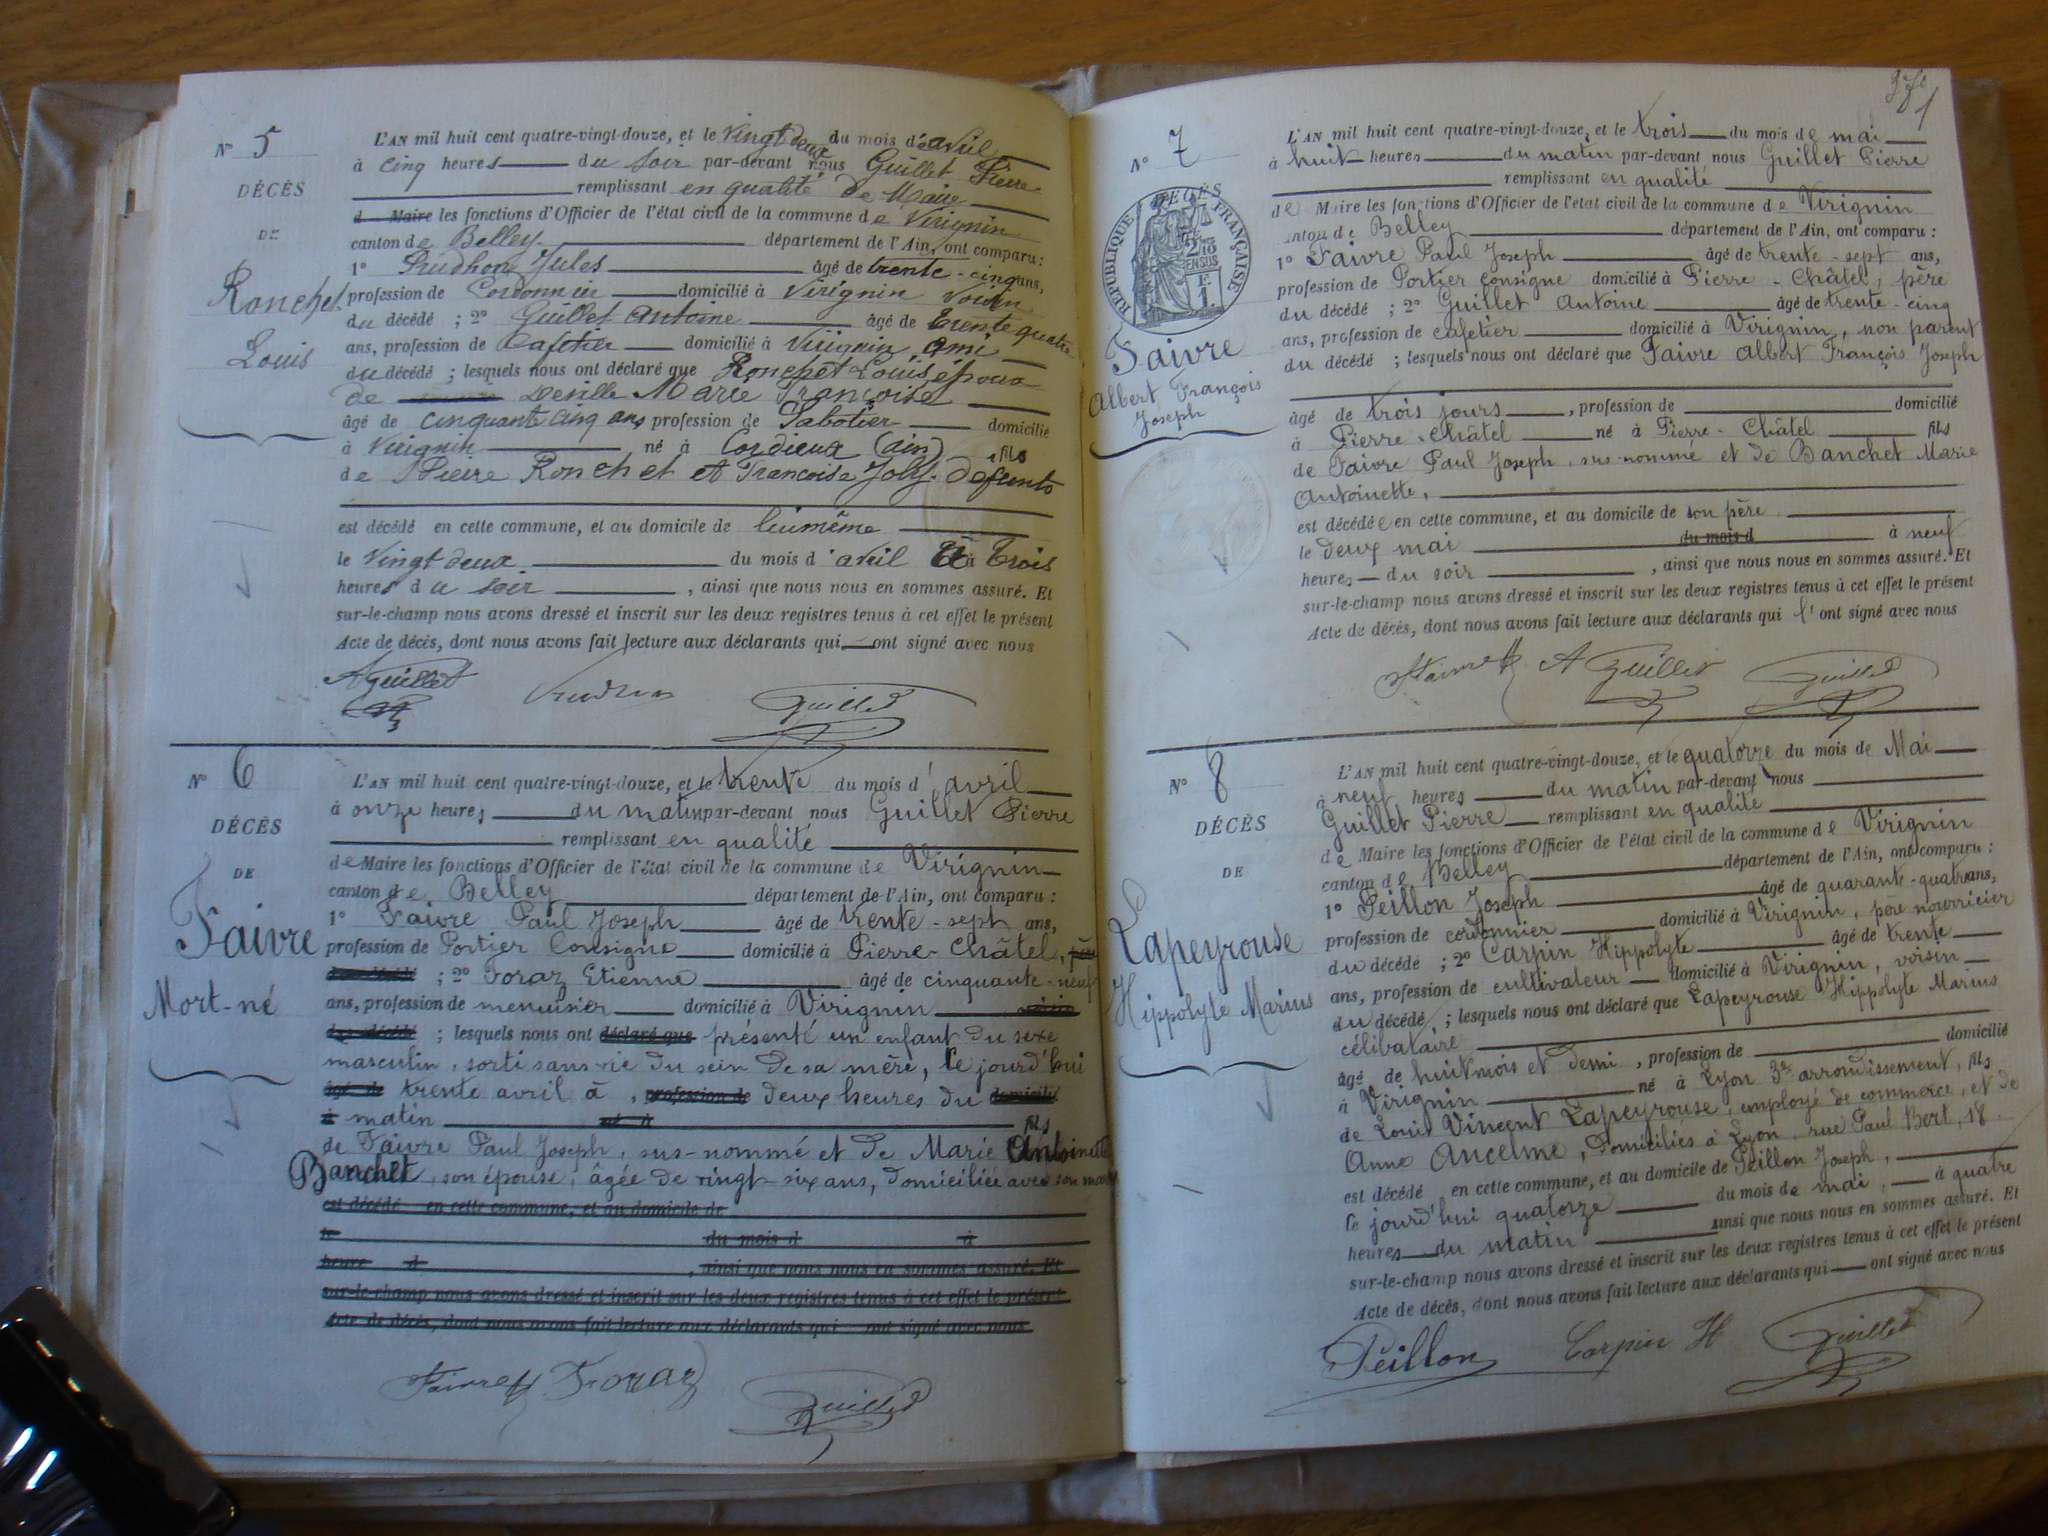 N° 5
DÉCÈS
DE
Ronchet
Louis
L'AN mil huit cent quatre-vingt-douze, et le vingt deux du mois d'avril
à cinq heures du soir par-devant nous Guillet Pierre
remplissant en qualité de Maire
d Maire les fonctions d'Officier de l'état civil de la commune de Virignin
canton de Belley département de l'Ain, ont comparu :
1° Prudhon Jules âgé de trente-cinq ans,
profession de Cordonnier domicilié à Virignin voisin
du décédé ; 2° Guillet Antoine âgé de trente quatre
ans, profession de Cafetier domicilié à Virignin ami
du décédé ; lesquels nous ont déclaré que Ronchet Louis époux
de Deville Marie Françoise
âgé de cinquante cinq ans profession de Sabotier domicilié
à Virignin né à Cordieux (ain) fils
de Pierre Ronchet et Francoise Joly. défunts
est décédé en cette commune, et au domicile de lui même
le vingt deux du mois d'avril à trois
heures du soir , ainsi que nous nous en sommes assuré. Et
sur-le-champ nous avons dressé et inscrit sur les deux registres tenus à cet effet le présent
Acte de décès, dont nous avons fait lecture aux déclarants qui ont signé avec nous
A Guillet Prudhon Guillet
N° 6
DÉCÈS
DE
Faivre
Mort-né
L'AN mil huit cent quatre-vingt-douze, et le trente du mois d'avril
à onze heures du matin par-devant nous Guillet Pierre
remplissant en qualité
de Maire les fonctions d'Officier de l'état civil de la commune de Virignin
canton de Belley département de l'Ain, ont comparu :
1° Faivre Paul Joseph âgé de trente-sept ans,
profession de Portier Consigne domicilié à Pierre-Châtel, père
du décédé ; 2° Foraz Etienne âgé de cinquante-neuf
ans, profession de menuisier domicilié à Virignin voisin
du décédé ; lesquels nous ont déclaré que présenté un enfant du sexe
masculin, sorti sans vie du sein de sa mère, le jourd'hui
âgé de trente avril à , profession de deux heures du domicilié
à matin né à fils
de Faivre Paul Joseph, sus-nommé et de Marie Antoinette
Banchet, son épouse, âgée de vingt-six ans, domiciliée avec son mari
est décédé en cette commune, et au domicile de
le du mois d à
heure d , ainsi que nous nous en sommes assuré. Et
sur-le-champ nous avons dressé et inscrit sur les deux registres tenus à cet effet le présent
Acte de décès, dont nous avons fait lecture aux déclarants qui ont signé avec nous
Faivre Foraz Guillet
N° 7
RÉPUBLIQUE FRANÇAISE
Faivre
Albert François
Joseph
L'AN mil huit cent quatre-vingt-douze, et le trois du mois de mai
à huit heures du matin par-devant nous Guillet Pierre
remplissant en qualité
de Maire les fonctions d'Officier de l'état civil de la commune de Virignin
canton de Belley département de l'Ain, ont comparu :
1° Faivre Paul Joseph âgé de trente-sept ans,
profession de Portier consigne domicilié à Pierre-Châtel, père
du décédé ; 2° Guillet Antoine âgé de trente-cinq
ans, profession de cafetier domicilié à Virignin, non parent
du décédé ; lesquels nous ont déclaré que Faivre Albert François Joseph
âgé de trois jours , profession de domicilié
à Pierre-Châtel né à Pierre-Châtel fils
de Faivre Paul Joseph, sus-nommé et de Banchet Marie
Antoinette,
est décédé en cette commune, et au domicile de son père
le deux mai du mois d à neuf
heures du soir , ainsi que nous nous en sommes assuré. Et
sur-le-champ nous avons dressé et inscrit sur les deux registres tenus à cet effet le présent
Acte de décès, dont nous avons fait lecture aux déclarants qui l'ont signé avec nous
Faivre A Guillet Guillet
N° 8
DÉCÈS
DE
Lapeyrouse
Hippolyte Marius
L'AN mil huit cent quatre-vingt-douze, et le quatorze du mois de Mai
à neuf heures du matin par-devant nous
Guillet Pierre remplissant en qualité
de Maire les fonctions d'Officier de l'état civil de la commune de Virignin
canton de Belley département de l'Ain, ont comparu :
1° Peillon Joseph âgé de quarante-quatre ans,
profession de cordonnier domicilié à Virignin, père nourricier
du décédé ; 2° Carpin Hippolyte âgé de trente
ans, profession de cultivateur domicilié à Virignin, voisin
du décédé ; lesquels nous ont déclaré que Lapeyrouse Hippolyte Marius
célibataire
âgé de huit mois et demi , profession de domicilié
à Virignin né à Lyon 3e arrondissement, fils
de Louis Vincent Lapeyrouse, employé de commerce, et de
Anne Ancelme, domiciliés à Lyon, rue Paul Bert, 18
est décédé en cette commune, et au domicile de Peillon Joseph,
le jourd'hui quatorze du mois de mai, à quatre
heures du matin ainsi que nous nous en sommes assuré. Et
sur-le-champ nous avons dressé et inscrit sur les deux registres tenus à cet effet le présent
Acte de décès, dont nous avons fait lecture aux déclarants qui ont signé avec nous
Peillon Carpin H Guillet